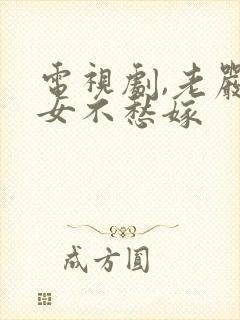 電視劇,老嚴
女不愁嫁
成方圓